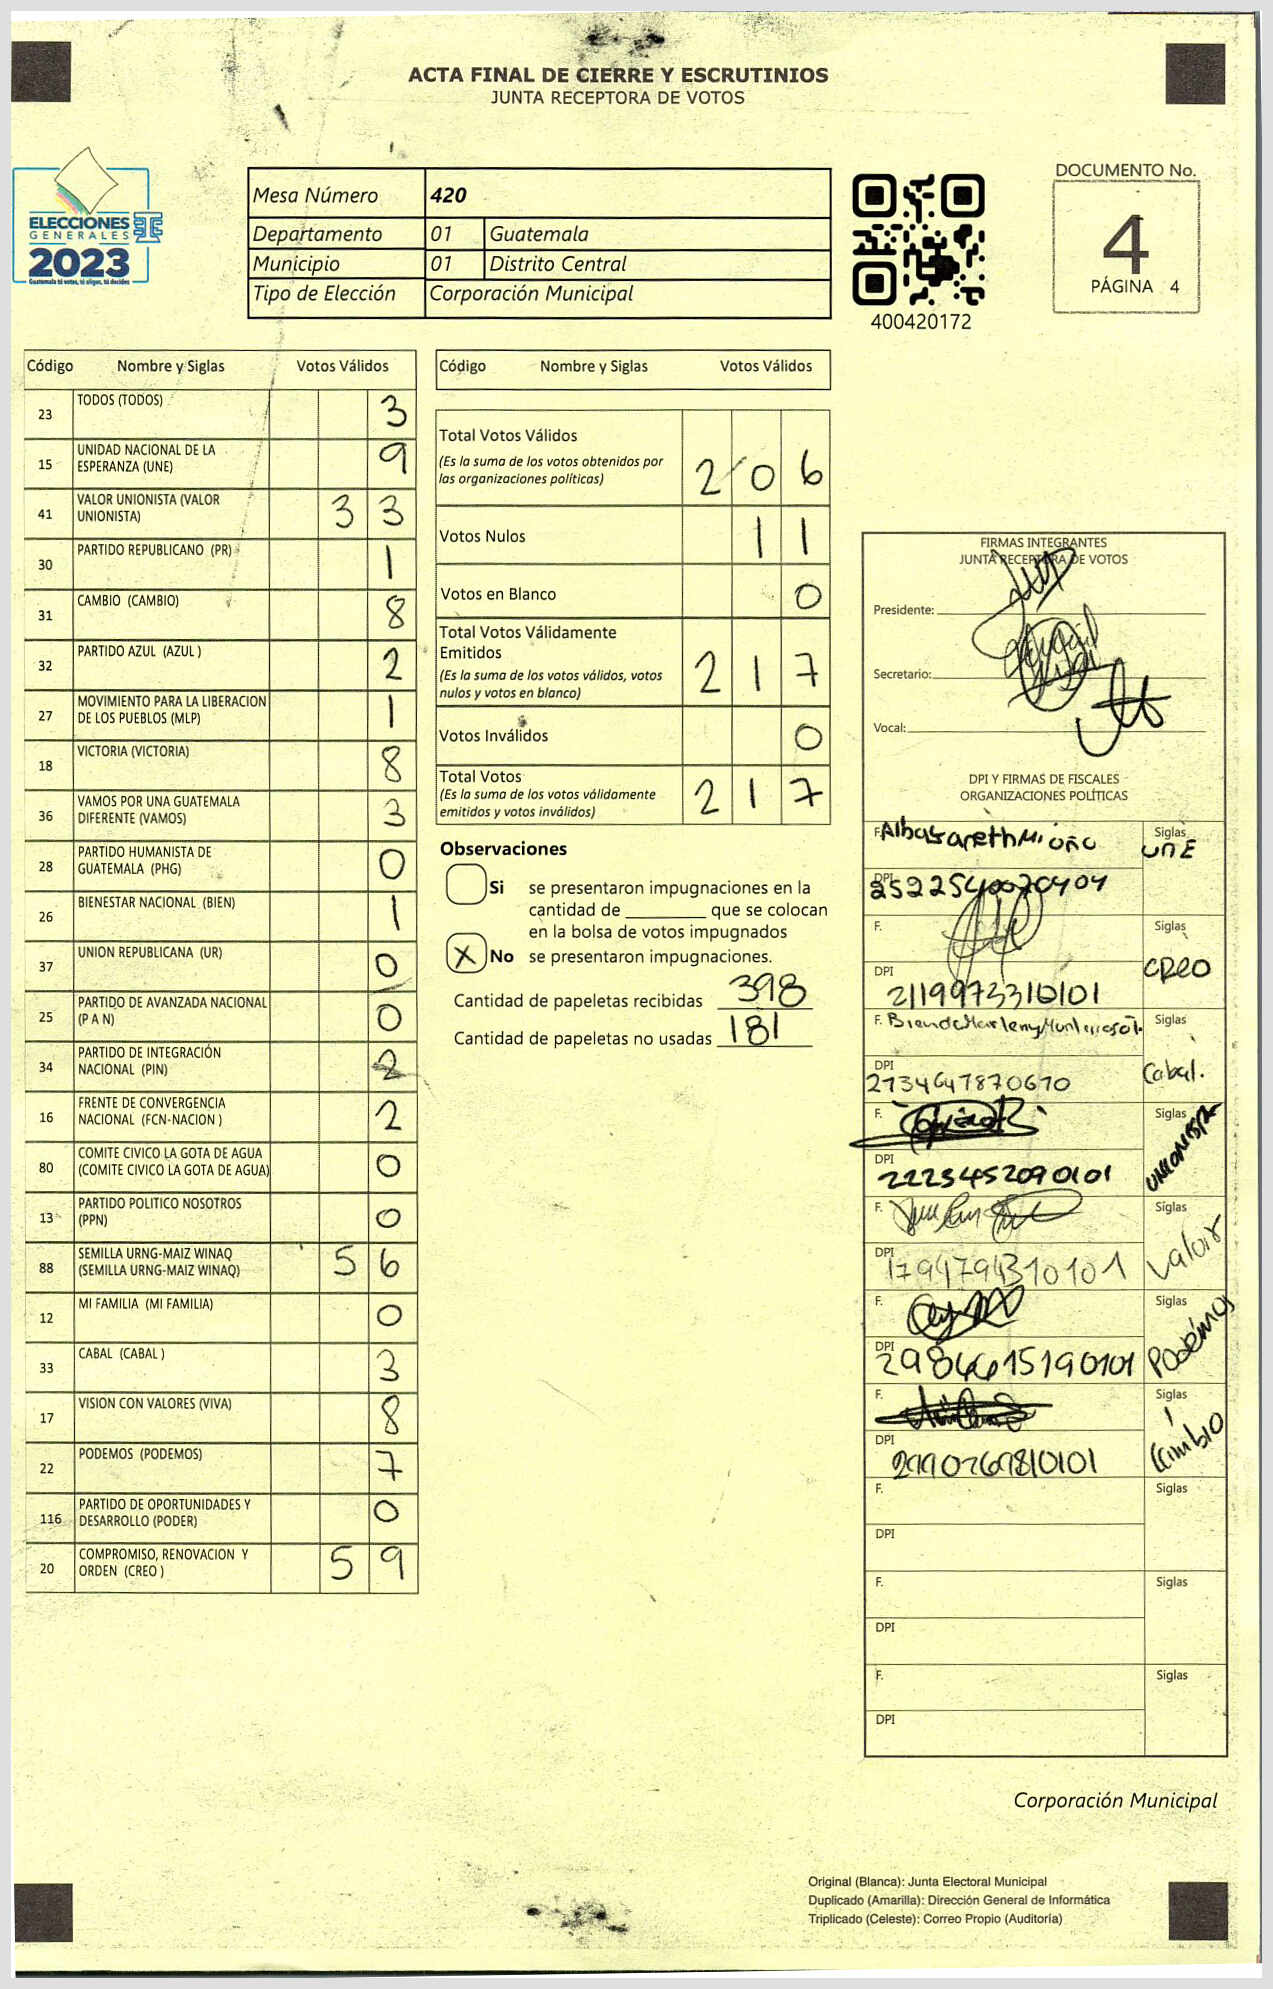 ACTA FINAL DE CIERRE Y ESCRUTINIOS
JUNTA RECEPTORA DE VOTOS
ELECCIONES
GENERALES
2023
Guatemala tú votas, tú eliges, tú decides
Mesa Número 420
Departamento 01 Guatemala
Municipio 01 Distrito Central
Tipo de Elección Corporación Municipal
400420172
DOCUMENTO No.
4
PÁGINA 4
Código Nombre y Siglas Votos Válidos
23 TODOS (TODOS) 3
15 UNIDAD NACIONAL DE LA ESPERANZA (UNE) 9
41 VALOR UNIONISTA (VALOR UNIONISTA) 3 3
30 PARTIDO REPUBLICANO (PR) 1
31 CAMBIO (CAMBIO) 8
32 PARTIDO AZUL (AZUL ) 2
27 MOVIMIENTO PARA LA LIBERACION DE LOS PUEBLOS (MLP) 1
18 VICTORIA (VICTORIA) 8
36 VAMOS POR UNA GUATEMALA DIFERENTE (VAMOS) 3
28 PARTIDO HUMANISTA DE GUATEMALA (PHG) 0
26 BIENESTAR NACIONAL (BIEN) 1
37 UNION REPUBLICANA (UR) 0
25 PARTIDO DE AVANZADA NACIONAL (P A N) 0
34 PARTIDO DE INTEGRACIÓN NACIONAL (PIN) 2
16 FRENTE DE CONVERGENCIA NACIONAL (FCN-NACION ) 2
80 COMITE CIVICO LA GOTA DE AGUA (COMITE CIVICO LA GOTA DE AGUA) 0
13 PARTIDO POLITICO NOSOTROS (PPN) 0
88 SEMILLA URNG-MAIZ WINAQ (SEMILLA URNG-MAIZ WINAQ) 5 6
12 MI FAMILIA (MI FAMILIA) 0
33 CABAL (CABAL ) 3
17 VISION CON VALORES (VIVA) 8
22 PODEMOS (PODEMOS) 7
116 PARTIDO DE OPORTUNIDADES Y DESARROLLO (PODER) 0
20 COMPROMISO, RENOVACION Y ORDEN (CREO ) 5 9
Código Nombre y Siglas Votos Válidos
Total Votos Válidos 2 0 6
(Es la suma de los votos obtenidos por
las organizaciones políticas)
Votos Nulos 1 1
Votos en Blanco 0
Total Votos Válidamente
Emitidos 2 1 7
(Es la suma de los votos válidos, votos
nulos y votos en blanco)
Votos Inválidos 0
Total Votos 2 1 7
(Es la suma de los votos válidamente
emitidos y votos inválidos)
Observaciones
Si se presentaron impugnaciones en la
cantidad de ________ que se colocan
en la bolsa de votos impugnados
X No se presentaron impugnaciones.
Cantidad de papeletas recibidas 398
Cantidad de papeletas no usadas 181
FIRMAS INTEGRANTES
JUNTA RECEPTORA DE VOTOS
Presidente:
Secretario:
Vocal:
DPI Y FIRMAS DE FISCALES
ORGANIZACIONES POLÍTICAS
F. Siglas
UNE
DPI 2522540020404
F. Siglas
CREO
DPI 2119973310101
F. Siglas
Cabal.
DPI 2734647870610
F. Siglas
UNIONISTA
DPI 2223452090101
F. Siglas
Valor
DPI 1794794310101
F. Siglas
Podémos
DPI 2984615190101
F. Siglas
DPI
F. Siglas
DPI
F. Siglas
DPI
F. Siglas
DPI
Corporación Municipal
Original (Blanca): Junta Electoral Municipal
Duplicado (Amarilla): Dirección General de Informática
Triplicado (Celeste): Correo Propio (Auditoría)